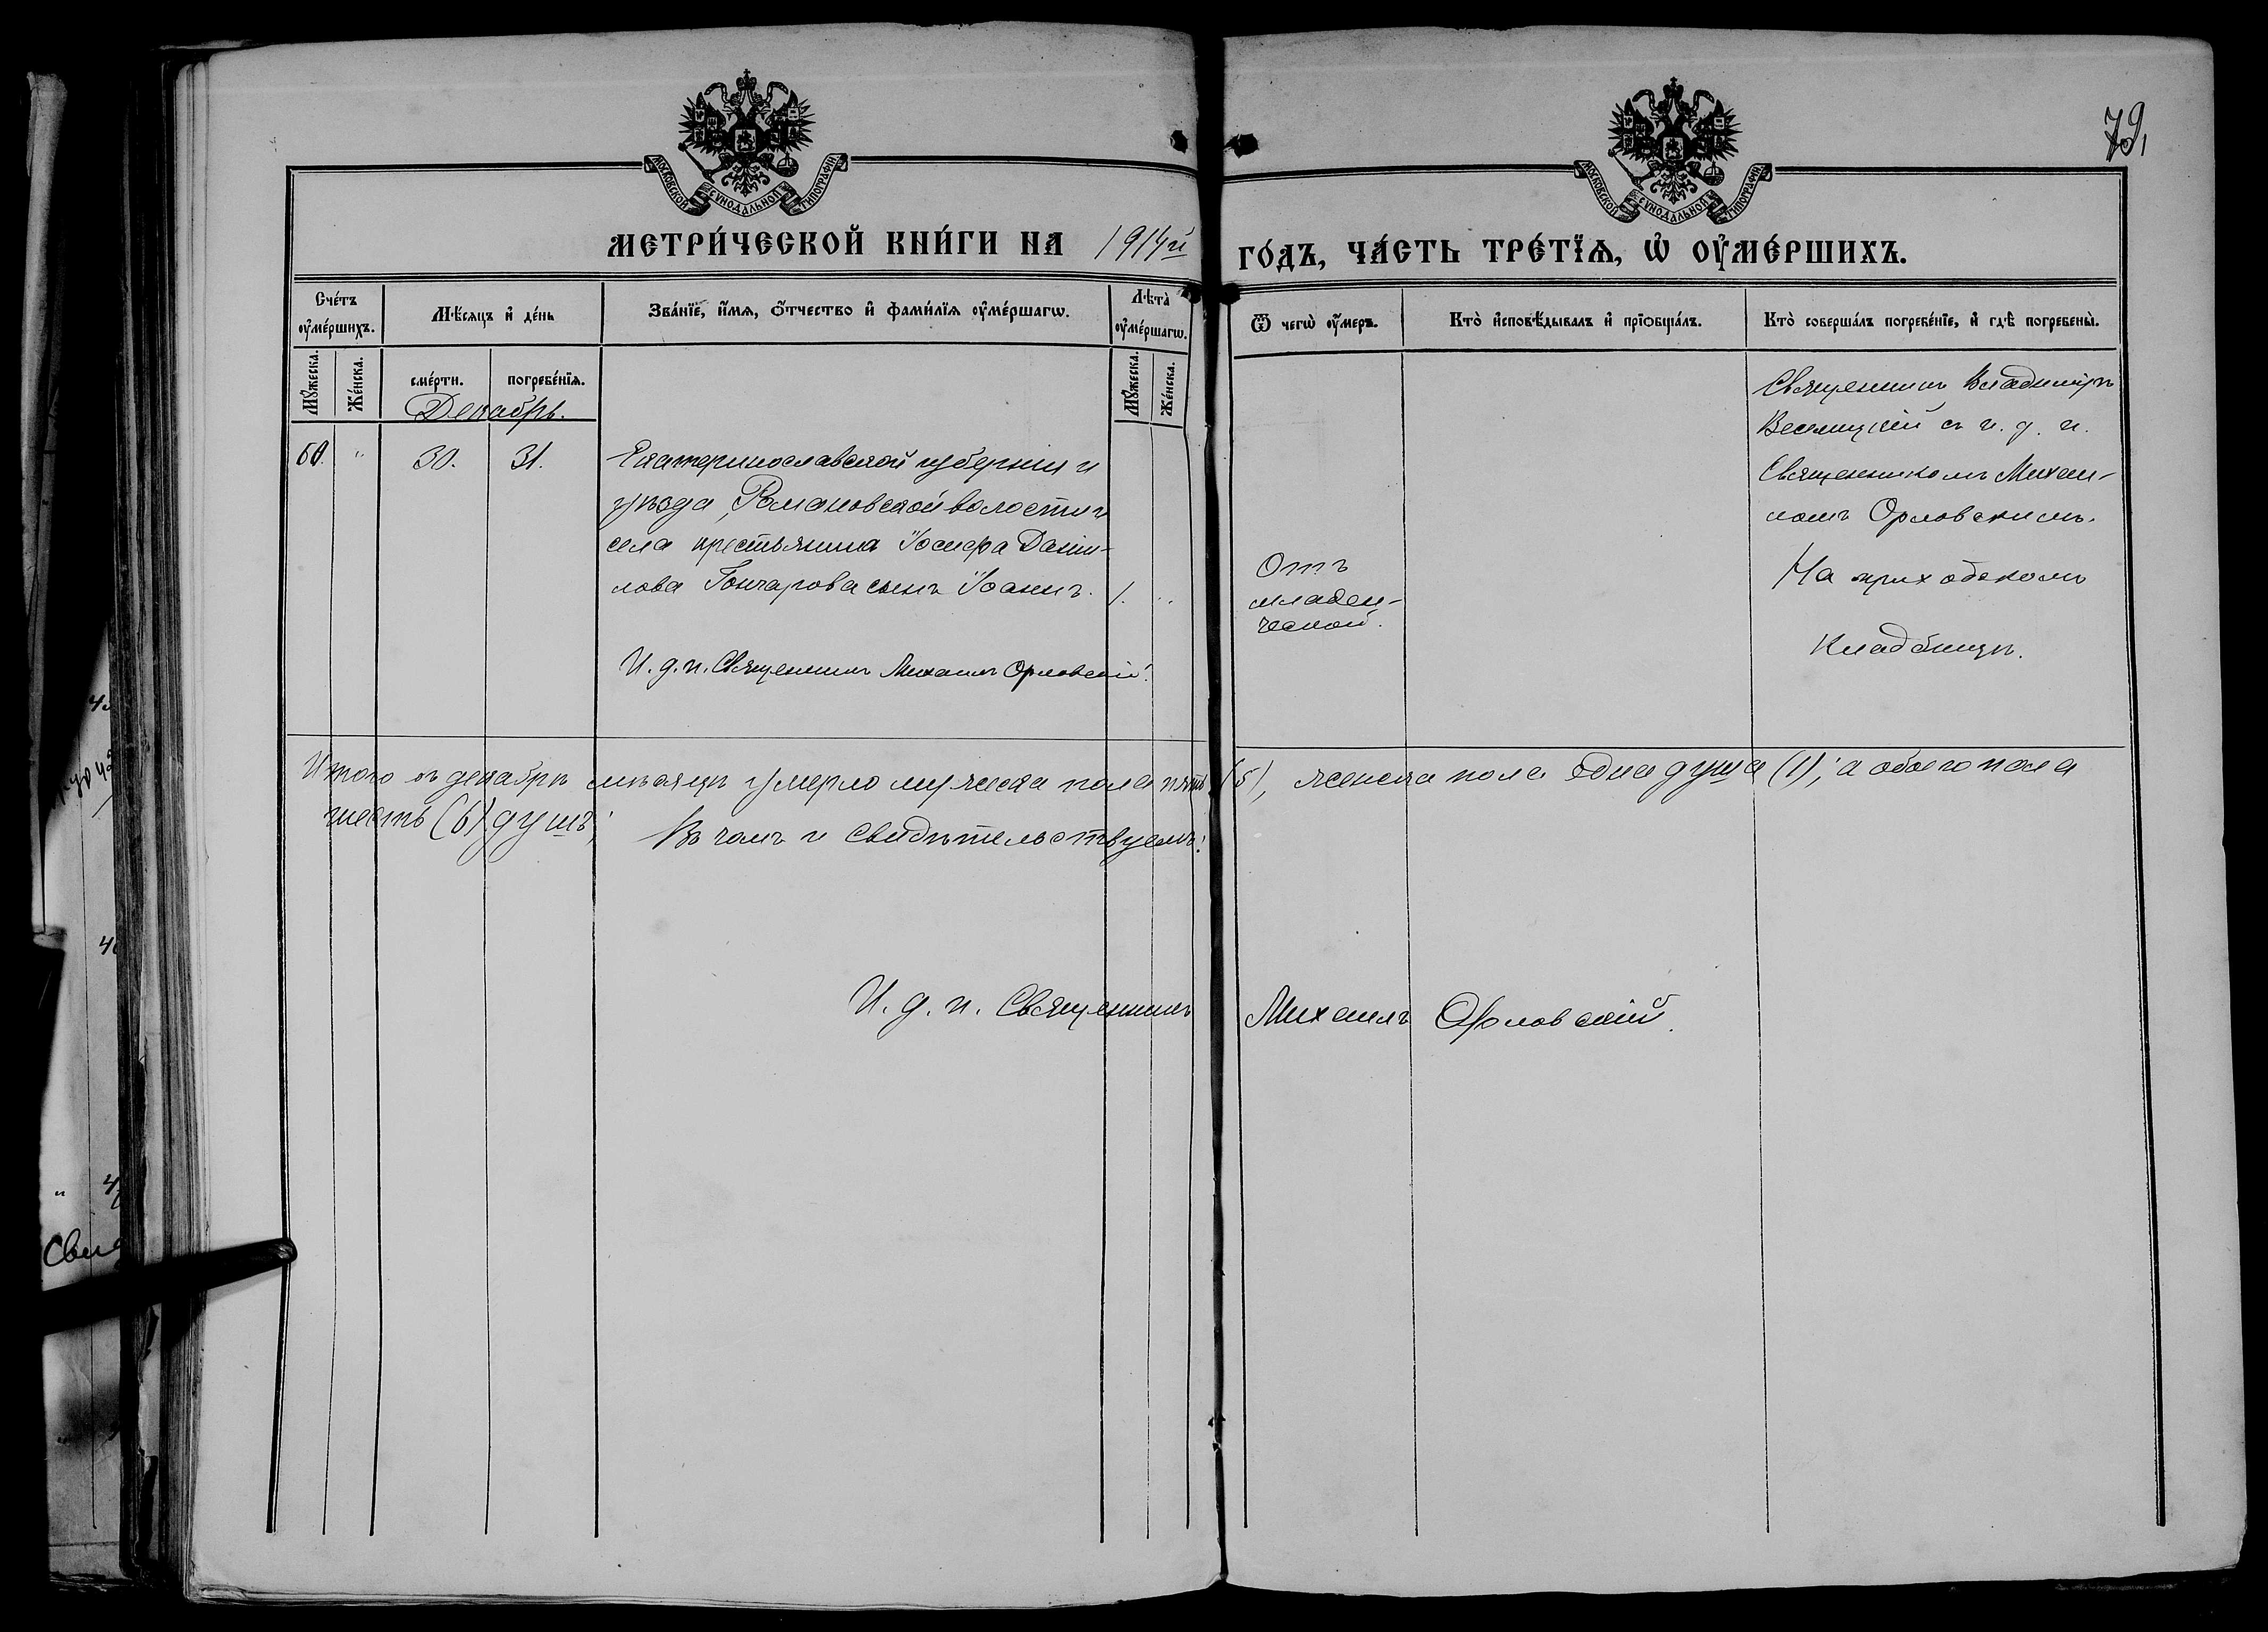 79,
МОСКОВСКОЙ СѴНОДАЛЬНОЙ ТИПОГРАФІИ
МОСКОВСКОЙ СѴНОДАЛЬНОЙ ТИПОГРАФІИ
МЕТРИ́ЧЕСКОЙ КНИ́ГИ НА 1914й ГО́ДЪ, ЧА́СТЬ ТРЕ́ТЇѦ, Ѡ҆ ОУ҆МЕ́РШИХЪ.
Сче́тъ оу҆ме́ршихъ.
Мѣ́сяцъ и҆ де́нь
Зва́нїе, и҆́мѧ, ѻ҆́тчество и҆ фами́лїѧ оу҆ме́ршагѡ.
Лѣ̀та оу҆ме́ршагѡ.
Ѿ чегѡ̀ оу҆́меръ.
Кто̀ и҆сповѣ́дывалъ и҆ прїѻбща́лъ.
Кто̀ соверша́лъ погребе́нїе, и҆ гдѣ̀ погребены̀.
Мꙋ́жеска.
Же́нска.
сме́рти.
погребе́нїѧ.
Мꙋ́жеска.
Же́нска.
Декабрь.
60. " 30. 31.
Екатеринославской губернии и
уѣзда, Романовской волости и
села крестьянина Іосифа Дани-
лова Гончарова сынъ Іоаннъ. 1. "
И. д. п. Священникъ Михаилъ Орловскій.
Отъ
младен-
ческой.
Священникъ Владиміръ
Веселицкій съ и. д. п.
Священникомъ Михаи-
ломъ Орловскимъ.
На приходскомъ
кладбищѣ.
Итого въ декабрѣ мѣсяцѣ умерло мужеска пола пять (5), женска пола одна душа (1); а обоего пола
шесть (6) душъ; Въ чемъ и свидѣтельствуемъ:
И. д. п. Священникъ Михаилъ Орловскій.